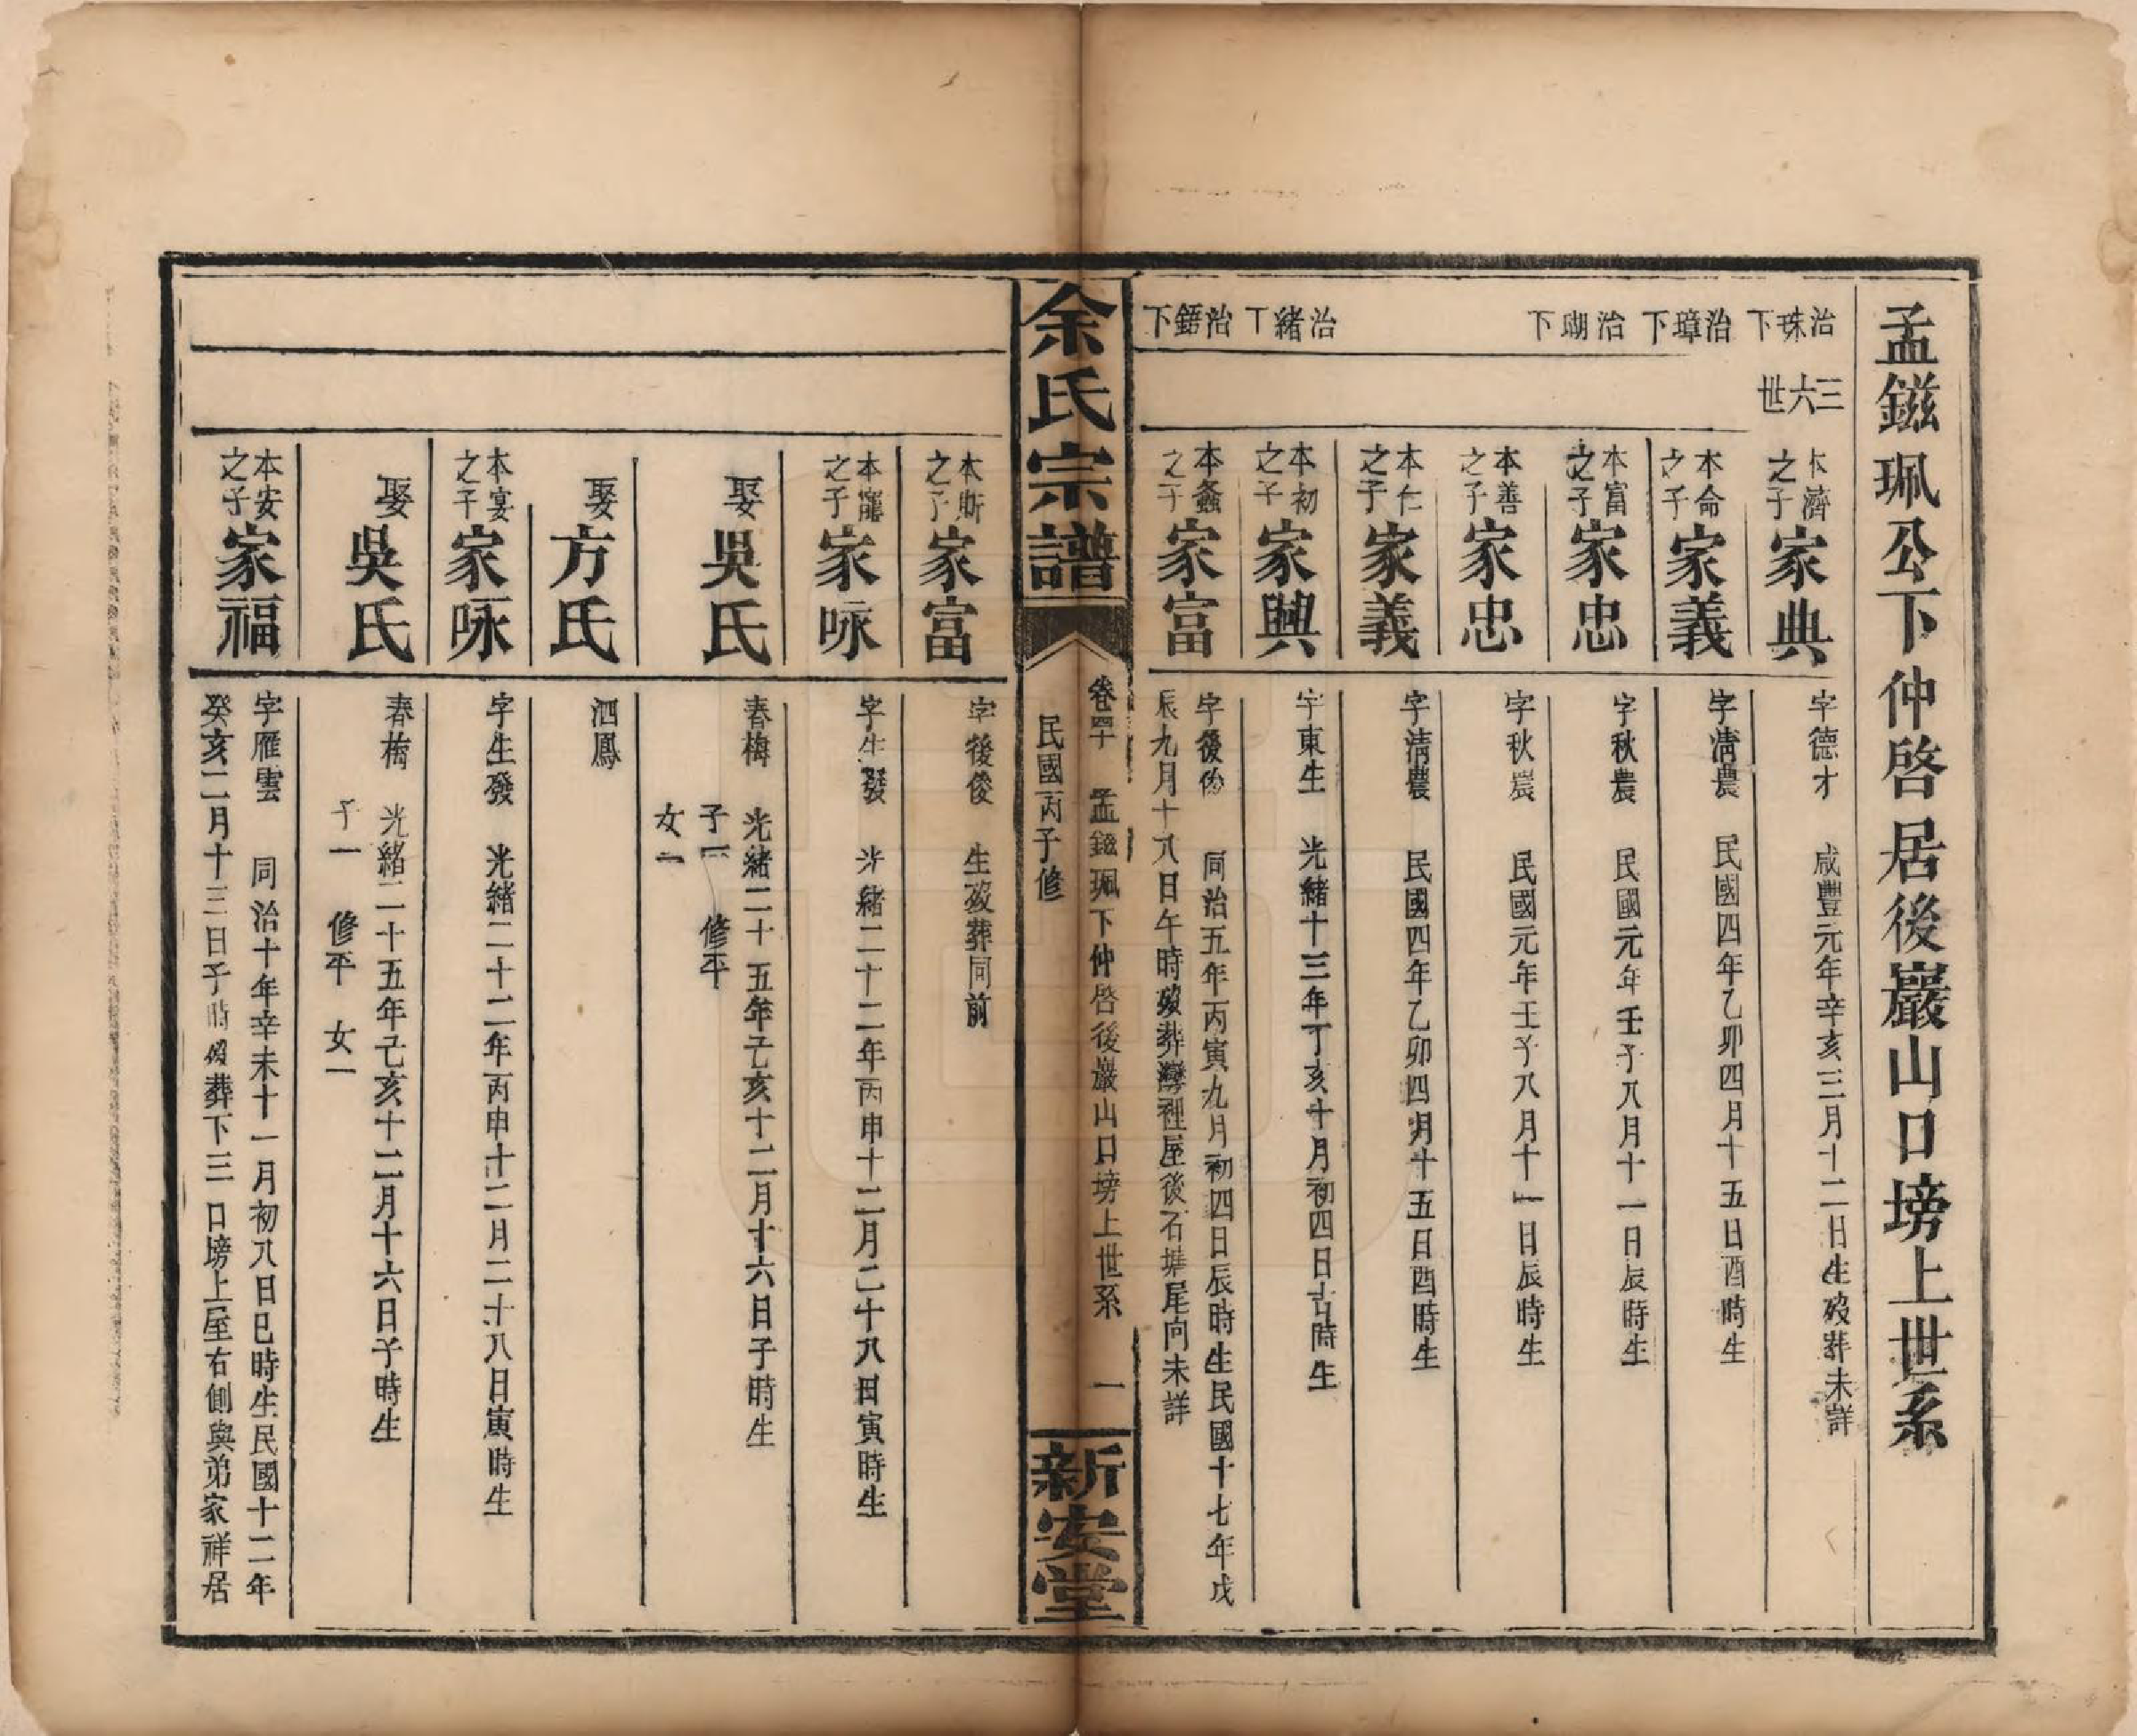 孟鎡珮公下仲啓居後巖山口塝上世系
治珠下
三六世
本濟之子
家典
字德才 咸豐元年辛亥三月十二日生歿葬未詳
治璋下
本命之子
家義
字清農 民國四年乙卯四月十五日酉時生
治瑚下
本富之子
家忠
字秋農 民國元年壬子八月十一日辰時生
本善之子
家忠
字秋農 民國元年壬子八月十一日辰時生
本仁之子
家義
字清農 民國四年乙卯四月十五日酉時生
治緒下
本初之子
家興
字東生 光緒十三年丁亥十月初四日 時生
治鋙下
本螽之子
家富
字後俊 同治五年丙寅九月初四日辰時生民國十七年戊
辰九月十八日午時歿葬灣裡屋後石塘尾向未詳
余氏宗譜
卷四十 孟鎡珮下仲啓後巖山口塝上世系 一
民國丙子修
新安堂
本斯之子
家富
字後俊 生歿葬同前
本寵之子
家咏
字生發 光緒二十二年丙申十二月二十八日寅時生
娶
吳氏
春梅 光緒二十五年乙亥十二月十六日子時生
子一 修平
女一
娶
方氏
泗鳳
本宴之子
家咏
字生發 光緒二十二年丙申十二月二十八日寅時生
娶
吳氏
春梅 光緒二十五年乙亥十二月十六日子時生
子一 修平 女一
本安之子
家福
字雁雲 同治十年辛未十一月初八日巳時生民國十二年
癸亥二月十三日子時歿葬下三口塝上屋右側與弟家祥居